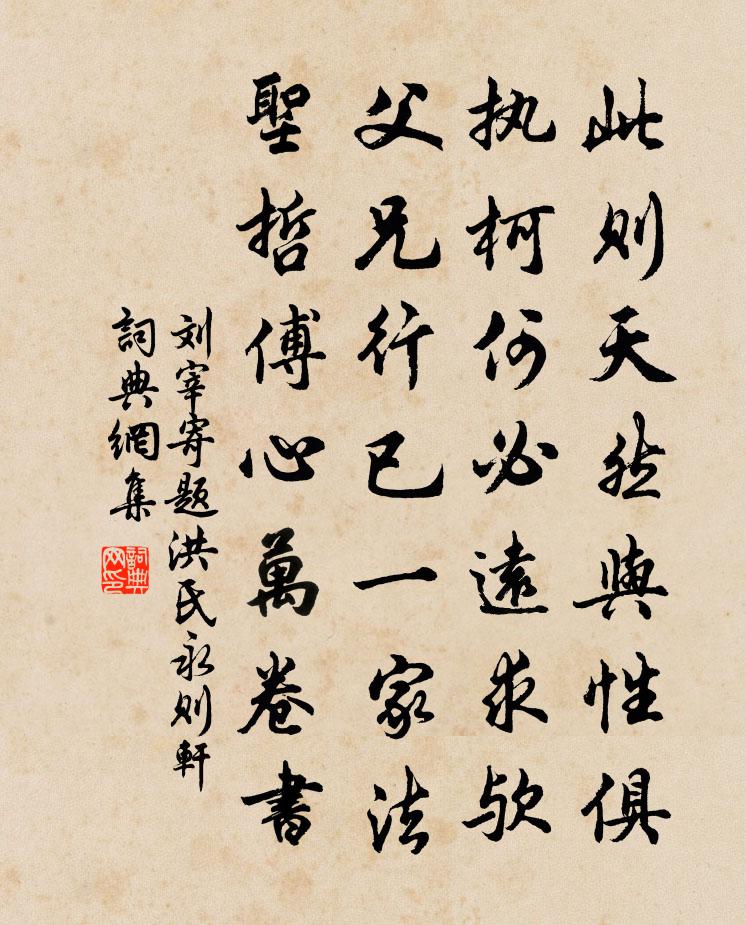 此则天然與性俱
执柯何必遠求欤
父兄行已一家法
聖哲傅心萬卷書
刘宰寄题洪氏永则軒
詞典網集
詞典网印